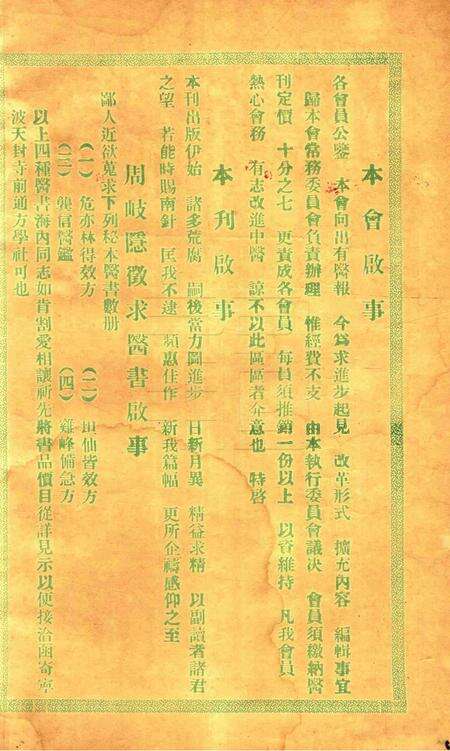 本會啟事
各會員公鑒　本會向出有醫報　今爲求進步起見　改革形式　擴充內容　編輯事宜
歸本會常務委員會負責辦理　惟經費不支　由本執行委員會議決　會員須繳納醫
刊定價　十分之七　更責成各會員　每員須推銷一份以上　以資維持　凡我會員
熱心會務　有志改進中醫　諒不以此區區者介意也　特啓
本刊啟事
本刊出版伊始　諸多荒腐　嗣後當力圖進步　日新月異　精益求精　以副讀者諸君
之望　若能時賜南針　匡我不逮　頻惠佳作　新我篇幅　更所企禱感仰之至
周岐隱徵求醫書啟事
鄙人近欲蒐求下列秘本醫書數册
（一）　危亦林得效方　（二）　仙皆效方
（三）　龔信醫鑑　（四）　雞峰備急方
以上四種醫書海內同志如肯割愛相讓祈先將書品價目從詳見示以便接洽函寄寧
波天封寺前通方學社可也